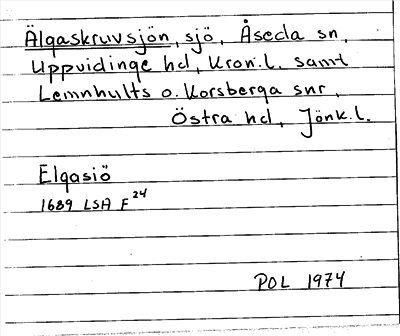 Älgaskruvsjön, sjö, Åseda sn,
Uppvidinge hd, Kron.l. samt
Lemnhults o. Korsberga snr,
Östra hd, Jönk.l.
Elgasiö
1689 LSA F 24
POL 1974